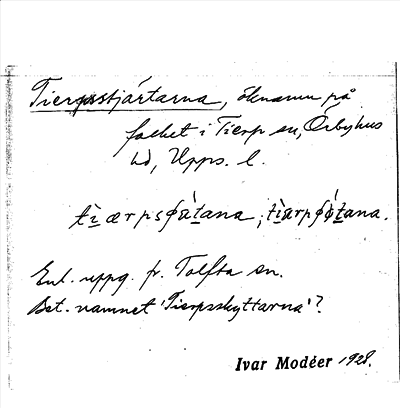 Tierpsstjärtarna, öknamn på
folket i Tierp sn, Örbyhus
hd, Upps. l.
tìærpsʃátana; tìærpʃǿtana.
Enl. uppg. fr. Tolfta sn.
Bet. namnet 'Tierpsskyttarna'?
Ivar Modéer 1928.